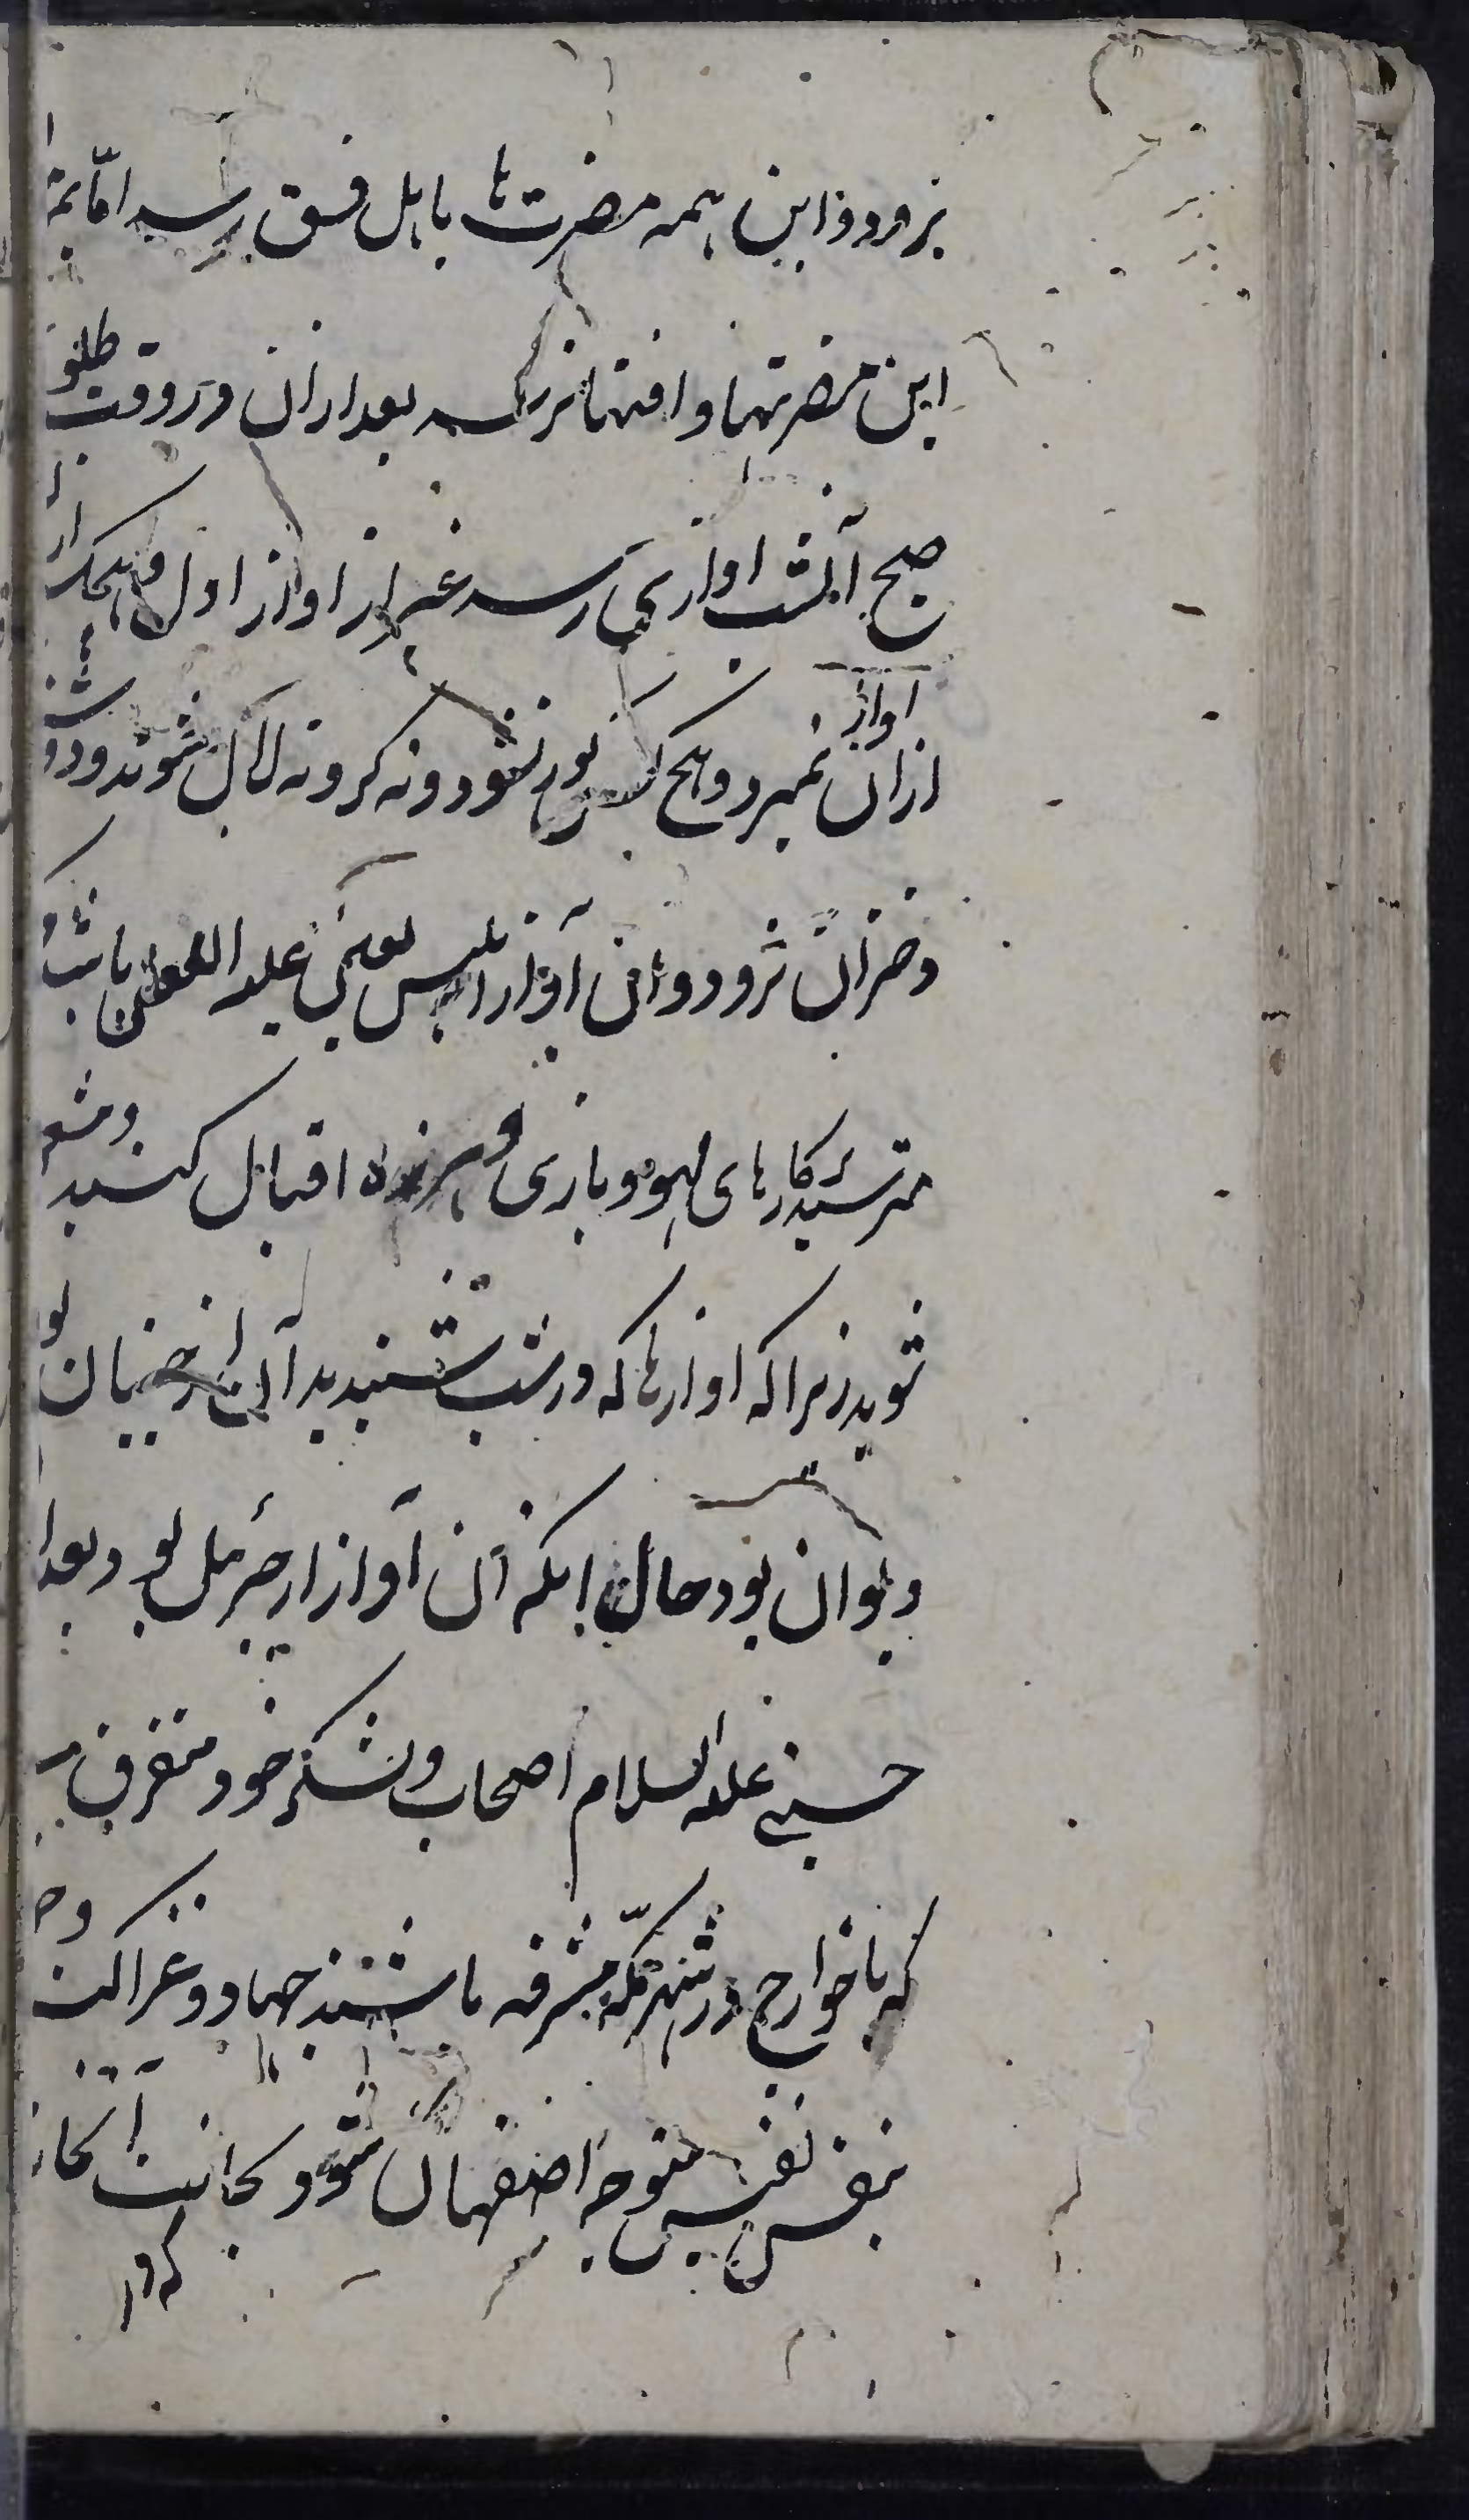 برود و این همه مضرتها باهل فسق رسد اما بمؤ
این مضرتها و افتها نرسد بعد ازان در وقت طلو
صبح آنشب اوازی رسد غیر از اواز اول و هیچکدار
از ان اواز نمیرد و هیچ کس کور نشود و نه کر و نه لال شوند و دو
دختران نرود و ان آواز ابلیس لعین علیه اللعن باشد
مترسید کارهای لهو و بازی و هرزه اقبال کنید و مشع
شوید زیرا که اوازها که در شب شنیدید آن از جنیان
دیوان بود حال انکه آن آواز از جبرئیل بود و بعدا
حسنی علیه السلام اصحاب و لشکر خود متفرق
که با خوارج در شهر مکه مشرفه باشند جهاد و غزا کنند و
بنفس نفیس متوجه اصفهان شود و بجانب آنجا
که در